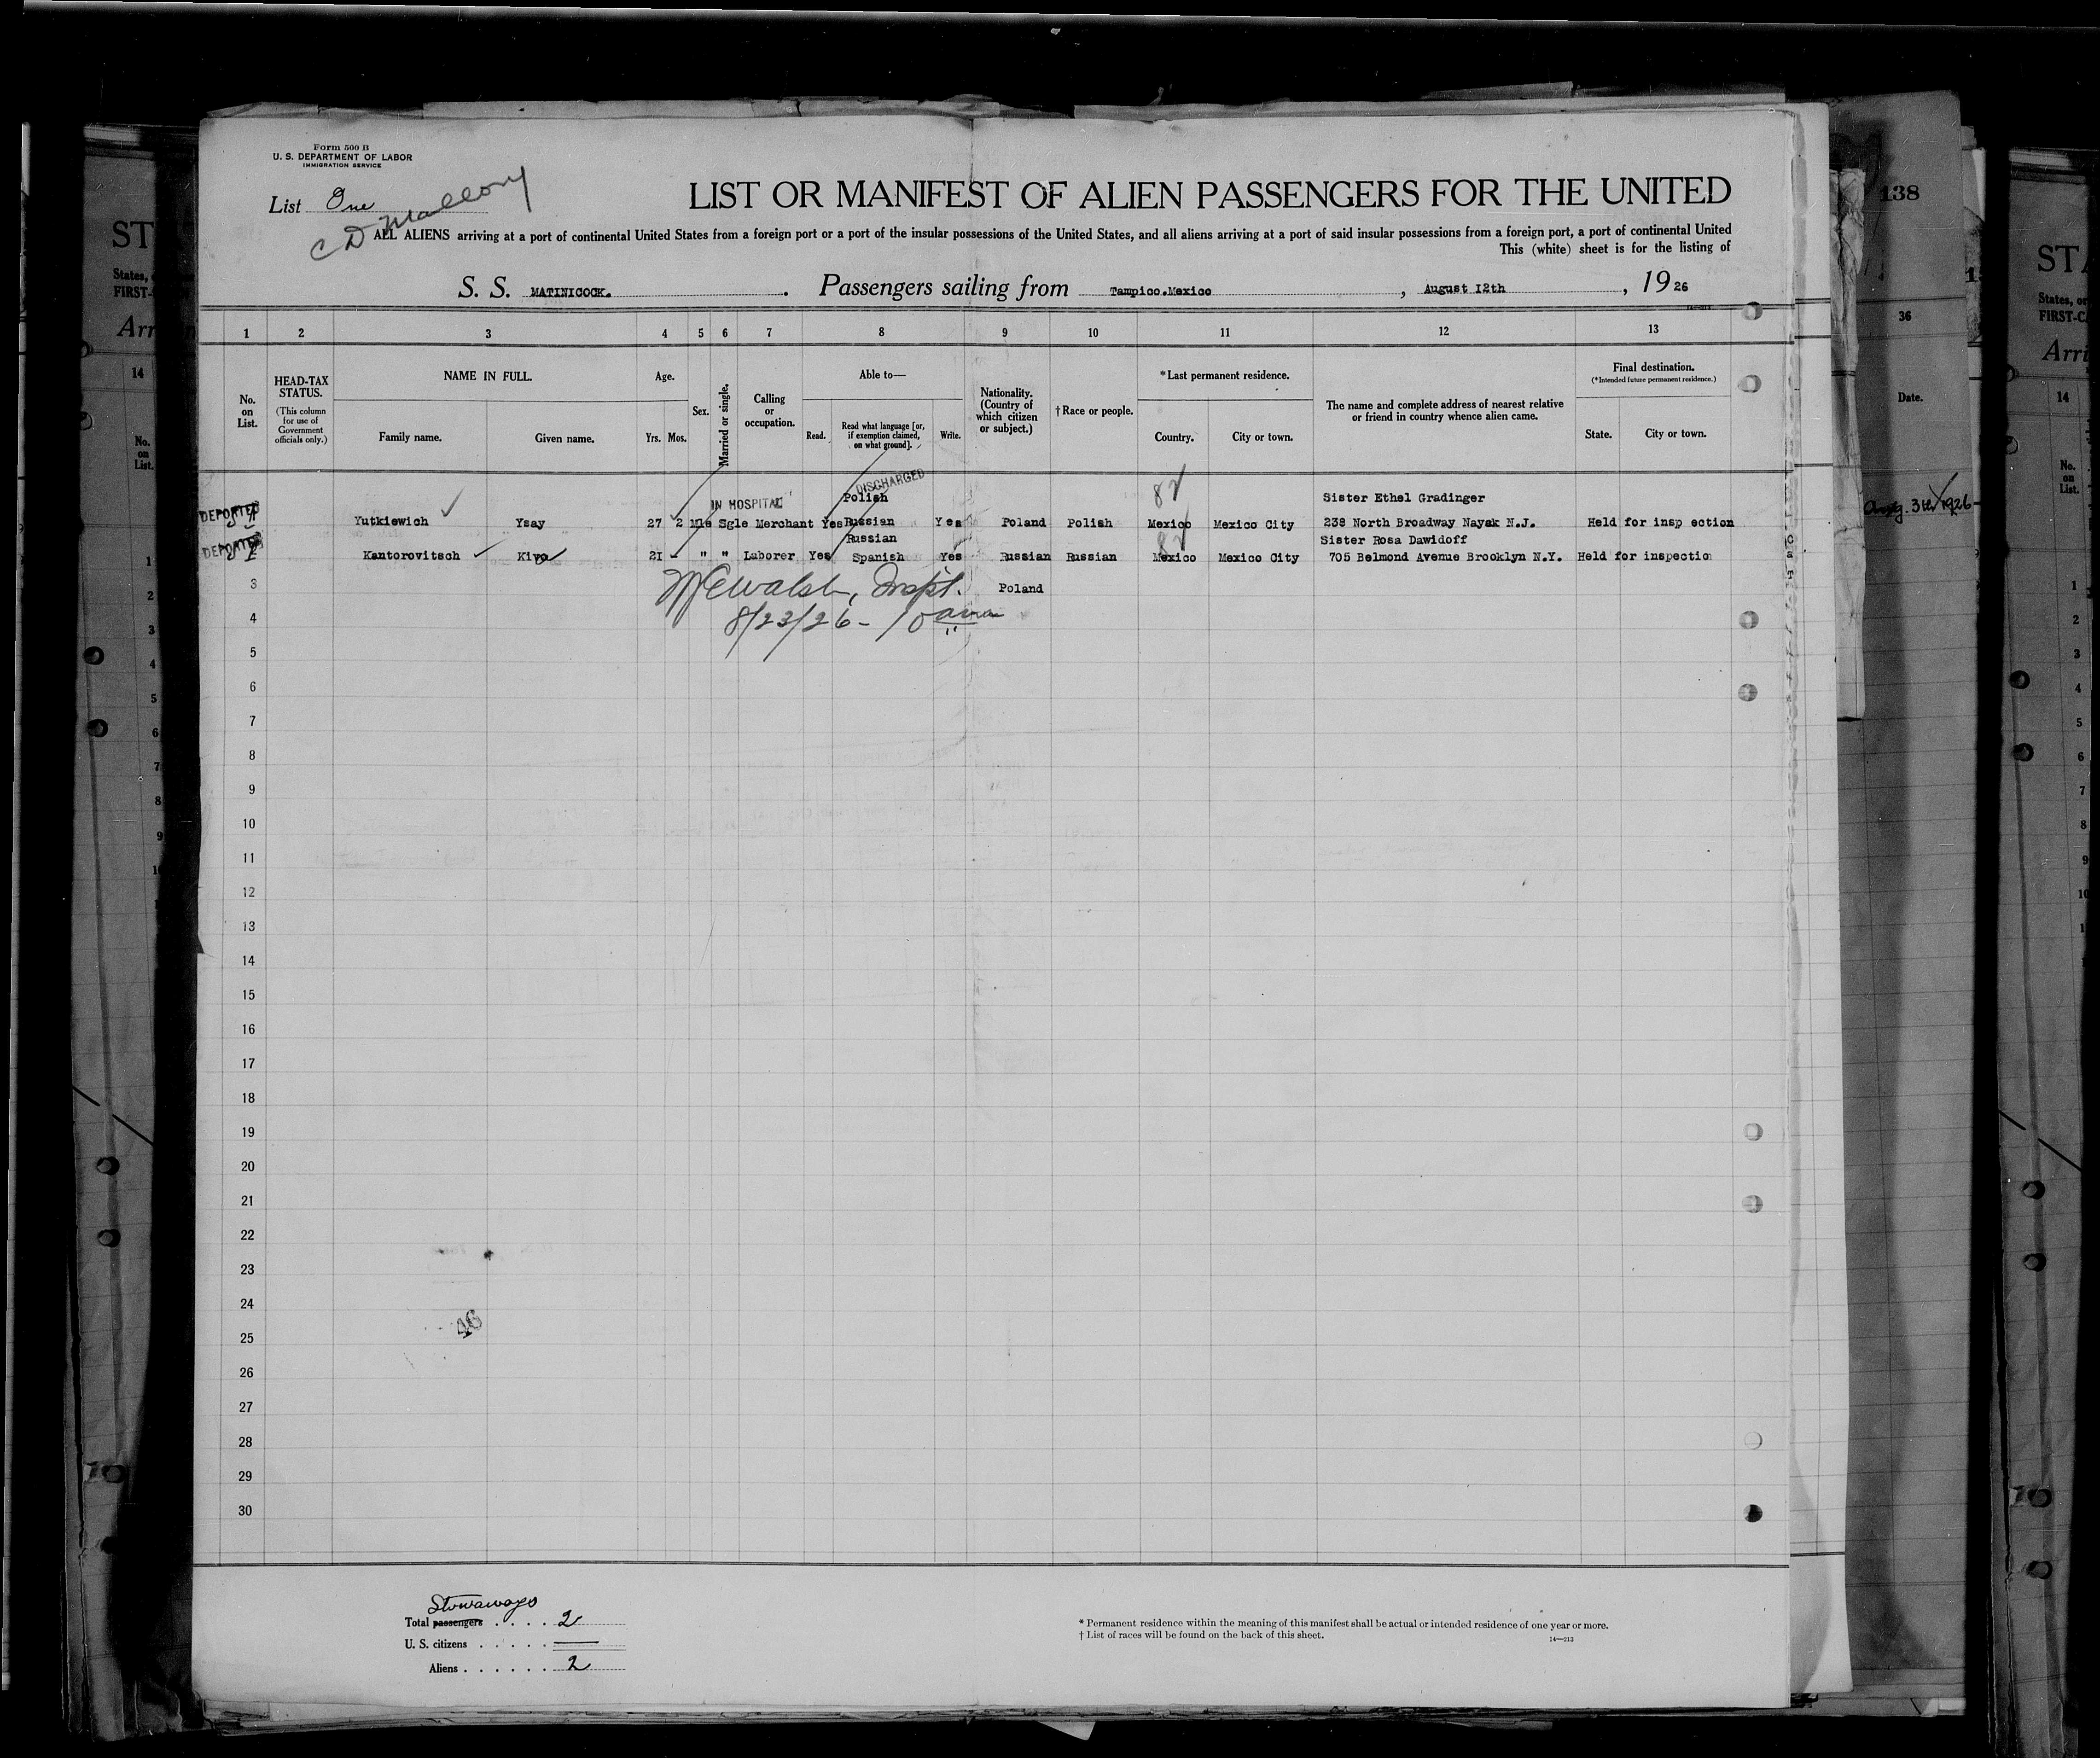 Form 500 B
U. S. DEPARTMENT OF LABOR
IMMIGRATION SERVICE
List One
C D Mallory
LIST OR MANIFEST OF ALIEN PASSENGERS FOR THE UNITED
ALL ALIENS arriving at a port of continental United States from a foreign port or a port of the insular possessions of the United States, and all aliens arriving at a port of said insular possessions from a foreign port, a port of continental United
This (white) sheet is for the listing of
S. S. MATINICOCK. Passengers sailing from Tampico.Mexico, August 12th, 1926
1 2 3 4 5 6 7 8 9 10 11 12 13
No. on List.
HEAD-TAX STATUS.
(This column for use of Government officials only.)
NAME IN FULL.
Family name. Given name.
Age.
Yrs. Mos.
Sex.
Married or single.
Calling or occupation.
Able to—
Read. Read what language [or, if exemption claimed, on what ground]. Write.
Nationality. (Country of which citizen or subject.)
†Race or people.
*Last permanent residence.
Country. City or town.
The name and complete address of nearest relative or friend in country whence alien came.
Final destination.
(*Intended future permanent residence.)
State. City or town.
IN HOSPITAL DISCHARGED
Polish 82 Sister Ethel Gradinger
DEPORTED Yutkiewich Ysay 27 2 Mle Sgle Merchant Yes Russian Yes Poland Polish Mexico Mexico City 238 North Broadway Nayak N.J. Held for insp ection
Russian Sister Rosa Dawidoff
DEPORTED Kantorovitsch 21 - " " Laborer Yes Spanish Yes Russian Russian Mexico Mexico City 705 Belmond Avenue Brooklyn N.Y. Held for inspectio
3 Walsh, Inspt. Poland
4 8/23/26 - 10 am
5
6
7
8
9
10
11
12
13
14
15
16
17
18
19
20
21
22
23
24
25
26
27
28
29
30
46
Stowaways
Total passengers . . . . 2
U. S. citizens . . . . .
Aliens . . . . . . 2
* Permanent residence within the meaning of this manifest shall be actual or intended residence of one year or more.
† List of races will be found on the back of this sheet.
14—213
138
36
Date.
Aug. 31st 1926